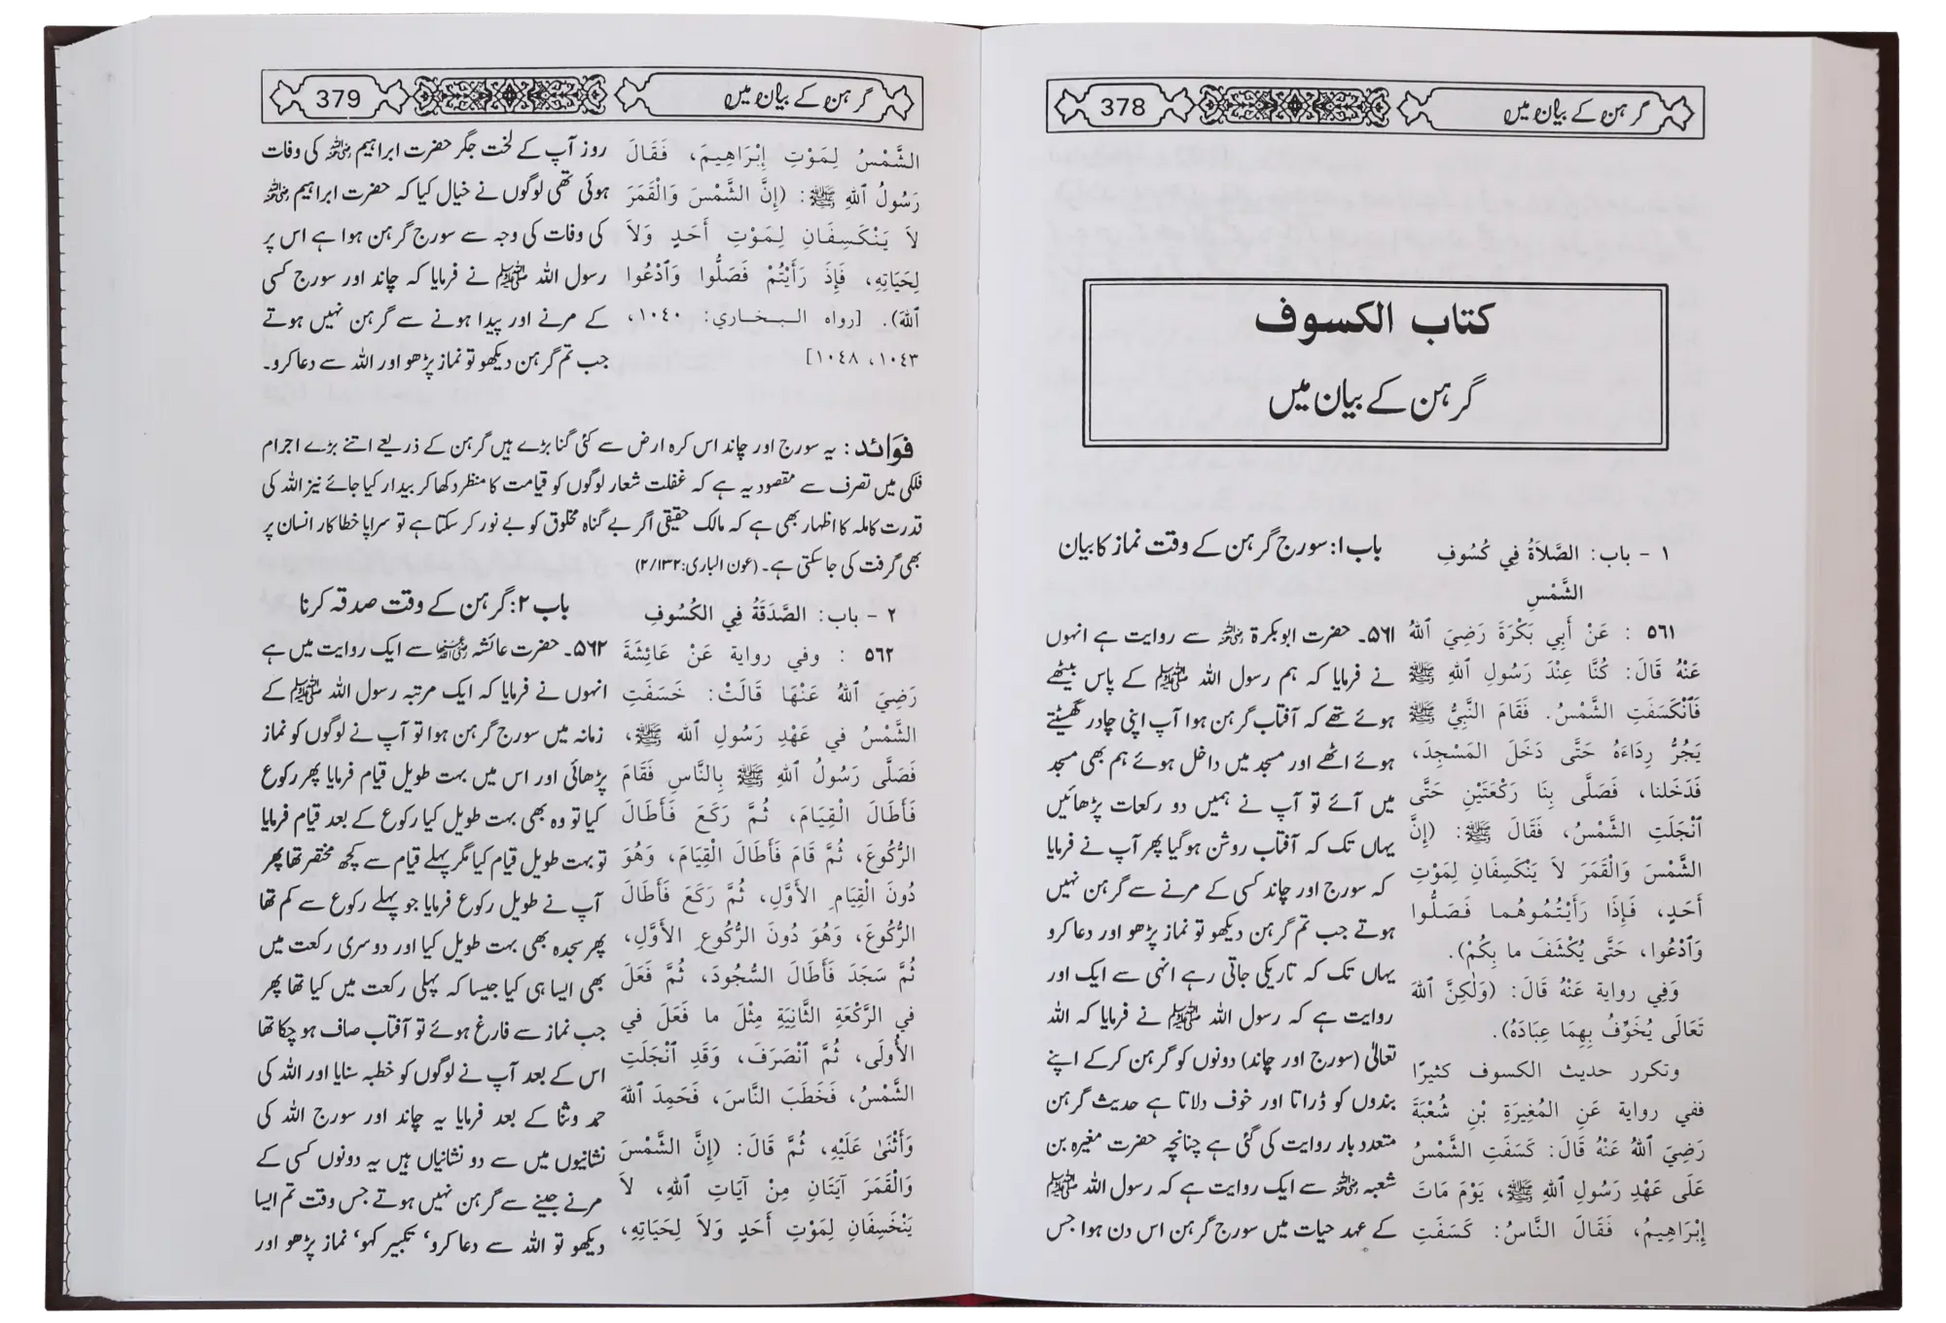 گرہن کے بیان میں
378
كتاب الكسوف
گرہن کے بیان میں
١ - باب: الصَّلاَةُ فِي كُسُوفِ
الشَّمْسِ
٥٦١ : عَنْ أَبِي بَكْرَةَ رَضِيَ ٱللهُ
عَنْهُ قَالَ: كُنَّا عِنْدَ رَسُولِ ٱللهِ ﷺ
فَٱنْكَسَفَتِ الشَّمْسُ. فَقَامَ النَّبِيُّ ﷺ
يَجُرُّ رِدَاءَهُ حَتَّى دَخَلَ المَسْجِدَ،
فَدَخَلنا، فَصَلَّى بِنَا رَكْعَتَيْنِ حَتَّى
ٱنْجَلَتِ الشَّمْسُ، فَقَالَ ﷺ: (إِنَّ
الشَّمْسَ وَالْقَمَرَ لاَ يَنْكَسِفَانِ لِمَوْتِ
أَحَدٍ، فَإِذَا رَأَيْتُمُوهُما فَصَلُّوا
وَٱدْعُوا، حَتَّى يُكْشَفَ ما بِكُمْ).
وَفِي رواية عَنْهُ قَالَ: (وَلٰكِنَّ ٱللهَ
تَعَالَى يُخَوِّفُ بِهِمَا عِبَادَهُ).
وتكرر حديث الكسوف كثيرًا
ففي رواية عَنِ المُغِيرَةِ بْنِ شُعْبَةَ
رَضِيَ ٱللهُ عَنْهُ قَالَ: كَسَفَتِ الشَّمْسُ
عَلَى عَهْدِ رَسُولِ ٱللهِ ﷺ، يَوْمَ مَاتَ
إِبْرَاهِيمُ، فَقَالَ النَّاسُ: كَسَفَتِ
باب ۱: سورج گرہن کے وقت نماز کا بیان
۵۶۱۔ حضرت ابوبکرۃ رضی اللہ عنہ سے روایت ہے انہوں
نے فرمایا کہ ہم رسول اللہ ﷺ کے پاس بیٹھے
ہوئے تھے کہ آفتاب گرہن ہوا آپ اپنی چادر گھسیٹتے
ہوئے اٹھے اور مسجد میں داخل ہوئے ہم بھی مسجد
میں آئے تو آپ نے ہمیں دو رکعات پڑھائیں
یہاں تک کہ آفتاب روشن ہوگیا پھر آپ نے فرمایا
کہ سورج اور چاند کسی کے مرنے سے گرہن نہیں
ہوتے جب تم گرہن دیکھو تو نماز پڑھو اور دعا کرو
یہاں تک کہ تاریکی جاتی رہے انہی سے ایک اور
روایت ہے کہ رسول اللہ ﷺ نے فرمایا کہ اللہ
تعالیٰ (سورج اور چاند) دونوں کو گرہن کرکے اپنے
بندوں کو ڈراتا اور خوف دلاتا ہے حدیث گرہن
متعدد بار روایت کی گئی ہے چنانچہ حضرت مغیرہ بن
شعبہ رضی اللہ عنہ سے ایک روایت ہے کہ رسول اللہ ﷺ
کے عہد حیات میں سورج گرہن اس دن ہوا جس
گرہن کے بیان میں
379
الشَّمْسُ لِمَوْتِ إِبْرَاهِيمَ، فَقَالَ
رَسُولُ ٱللهِ ﷺ: (إِنَّ الشَّمْسَ وَالْقَمَرَ
لاَ يَنْكَسِفَانِ لِمَوْتِ أَحَدٍ وَلاَ
لِحَيَاتِهِ، فَإِذَ رَأَيْتُمْ فَصَلُّوا وَٱدْعُوا
ٱللهَ). [رواه البخاري: ١٠٤٠،
١٠٤٣، ١٠٤٨]
روز آپ کے لخت جگر حضرت ابراہیم رضی اللہ عنہ کی وفات
ہوئی تھی لوگوں نے خیال کیا کہ حضرت ابراہیم رضی اللہ عنہ
کی وفات کی وجہ سے سورج گرہن ہوا ہے اس پر
رسول اللہ ﷺ نے فرمایا کہ چاند اور سورج کسی
کے مرنے اور پیدا ہونے سے گرہن نہیں ہوتے
جب تم گرہن دیکھو تو نماز پڑھو اور اللہ سے دعا کرو۔
فوائد: یہ سورج اور چاند اس کرہ ارض سے کئی گنا بڑے ہیں گرہن کے ذریعے اتنے بڑے اجرام
فلکی میں تصرف سے مقصود یہ ہے کہ غفلت شعار لوگوں کو قیامت کا منظر دکھا کر بیدار کیا جائے نیز اللہ کی
قدرت کاملہ کا اظہار بھی ہے کہ مالک حقیقی اگر بے گناہ مخلوق کو بے نور کر سکتا ہے تو سراپا خطا کار انسان پر
بھی گرفت کی جاسکتی ہے۔ (عون الباری:۲/۱۳۲)
٢ - باب: الصَّدَقَةُ فِي الكُسُوفِ
٥٦٢ : وفي رواية عَنْ عَائِشَةَ
رَضِيَ ٱللهُ عَنْهَا قَالَتْ: خَسَفَتِ
الشَّمْسُ في عَهْدِ رَسُولِ ٱلله ﷺ،
فَصَلَّى رَسُولُ ٱللهِ ﷺ بِالنَّاسِ فَقَامَ
فَأَطَالَ الْقِيَامَ، ثُمَّ رَكَعَ فَأَطَالَ
الرُّكُوعَ، ثُمَّ قَامَ فَأَطَالَ الْقِيَامَ، وَهُوَ
دُونَ الْقِيَامِ الأَوَّلِ، ثُمَّ رَكَعَ فَأَطَالَ
الرُّكُوعَ، وَهُوَ دُونَ الرُّكُوعِ الأَوَّلِ،
ثُمَّ سَجَدَ فَأَطَالَ السُّجُودَ، ثُمَّ فَعَلَ
في الرَّكْعَةِ الثَّانِيَةِ مِثْلَ ما فَعَلَ في
الأُولَى، ثُمَّ ٱنْصَرَفَ، وَقَدِ ٱنْجَلَتِ
الشَّمْسُ، فَخَطَبَ النَّاسَ، فَحَمِدَ ٱللهَ
وَأَثْنَىٰ عَلَيْهِ، ثُمَّ قَالَ: (إِنَّ الشَّمْسَ
وَالْقَمَرَ آيَتَانِ مِنْ آيَاتِ ٱللهِ، لاَ
يَنْخَسِفَانِ لِمَوْتِ أَحَدٍ وَلاَ لِحَيَاتِهِ،
باب ۲: گرہن کے وقت صدقہ کرنا
۵۶۲۔ حضرت عائشہ رضی اللہ عنہا سے ایک روایت میں ہے
انہوں نے فرمایا کہ ایک مرتبہ رسول اللہ ﷺ کے
زمانہ میں سورج گرہن ہوا تو آپ نے لوگوں کو نماز
پڑھائی اور اس میں بہت طویل قیام فرمایا پھر رکوع
کیا تو وہ بھی بہت طویل کیا رکوع کے بعد قیام فرمایا
تو بہت طویل قیام کیا مگر پہلے قیام سے کچھ مختصر تھا پھر
آپ نے طویل رکوع فرمایا جو پہلے رکوع سے کم تھا
پھر سجدہ بھی بہت طویل کیا اور دوسری رکعت میں
بھی ایسا ہی کیا جیسا کہ پہلی رکعت میں کیا تھا پھر
جب نماز سے فارغ ہوئے تو آفتاب صاف ہو چکا تھا
اس کے بعد آپ نے لوگوں کو خطبہ سنایا اور اللہ کی
حمد وثنا کے بعد فرمایا یہ چاند اور سورج اللہ کی
نشانیوں میں سے دو نشانیاں ہیں یہ دونوں کسی کے
مرنے جینے سے گرہن نہیں ہوتے جس وقت تم ایسا
دیکھو تو اللہ سے دعا کرو‘ تکبیر کہو‘ نماز پڑھو اور